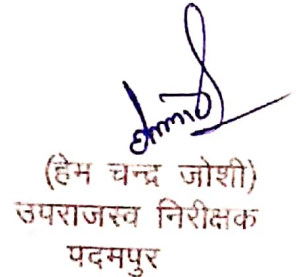 (हेम चन्द्र जोशी)
उपराजस्व निरीक्षक
पदमपुर